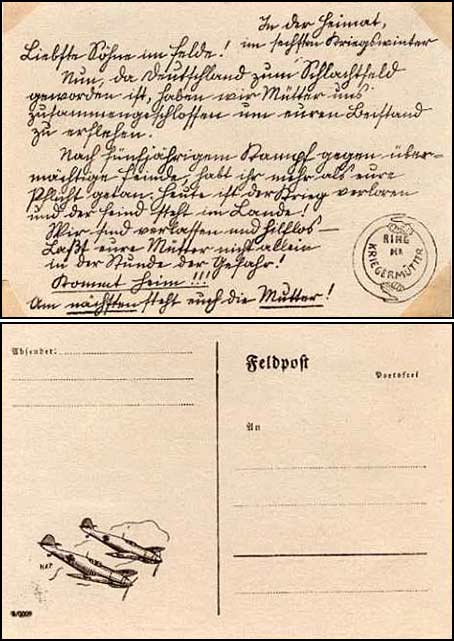 In der Heimat,
im sechsten Kriegswinter
Liebste Söhne im Felde!
Nun, da Deutschland zum Schlachtfeld
geworden ist, haben wir Mütter uns
zusammengeschlossen um euren Beistand
zu erflehen.
Nach fünfjährigem Kampf gegen über-
mächtige Feinde, habt ihr mehr als eure
Pflicht getan. Heute ist der Krieg verloren
und der Feind steht im Lande!
Wir sind verlassen und hilflos –
Laßt eure Mütter nicht allein
in der Stunde der Gefahr!
Kommt heim!!!
Am nächsten steht euch die Mutter!
RING
DER
KRIEGERMÜTTER
Absender:
Feldpost
Portofrei
An